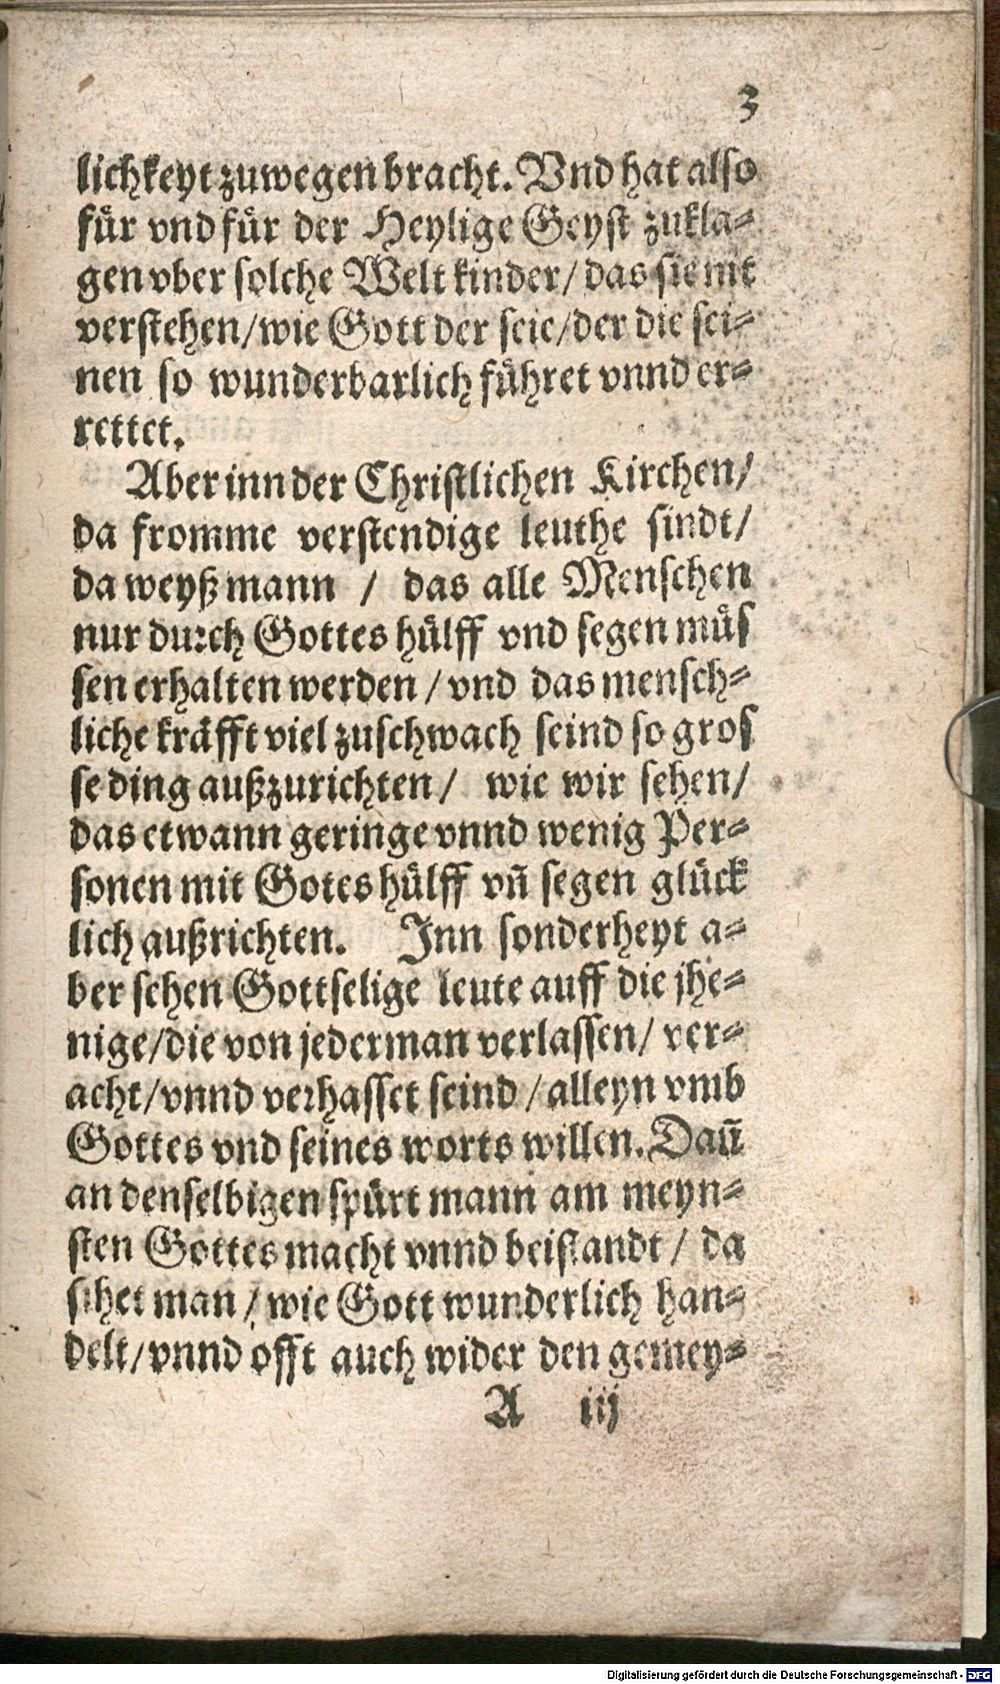 3
lichkeyt zuwegen bracht. Vnd hat also
für vnd für der Heylige Geyst zukla⸗
gen vber solche Welt kinder/ das sie nit
verstehen/ wie Gott der seie/ der die sei⸗
nen so wunderbarlich führet vnnd er⸗
rettet.
Aber inn der Christlichen Kirchen/
da fromme verstendige leuthe sindt/
da weyß mann / das alle Menschen
nur durch Gottes hülff vnd segen müs
sen erhalten werden / vnd das mensch⸗
liche kräfft viel zuschwach seind so gros
se ding außzurichten/ wie wir sehen/
das etwann geringe vnnd wenig Per⸗
sonen mit Gotes hülff vñ segen glück
lich außrichten. Inn sonderheyt a⸗
ber sehen Gottselige leute auff die jhe⸗
nige/ die von jederman verlassen/ ver⸗
acht/ vnnd verhasset seind / alleyn vmb
Gottes vnd seines worts willen. Dañ
an denselbigen spürt mann am meyn⸗
sten Gottes macht vnnd beistandt / da
sihet man / wie Gott wunderlich han⸗
delt/ vnnd offt auch wider den gemey⸗
A iij
Digitalisierung gefördert durch die Deutsche Forschungsgemeinschaft - DFG